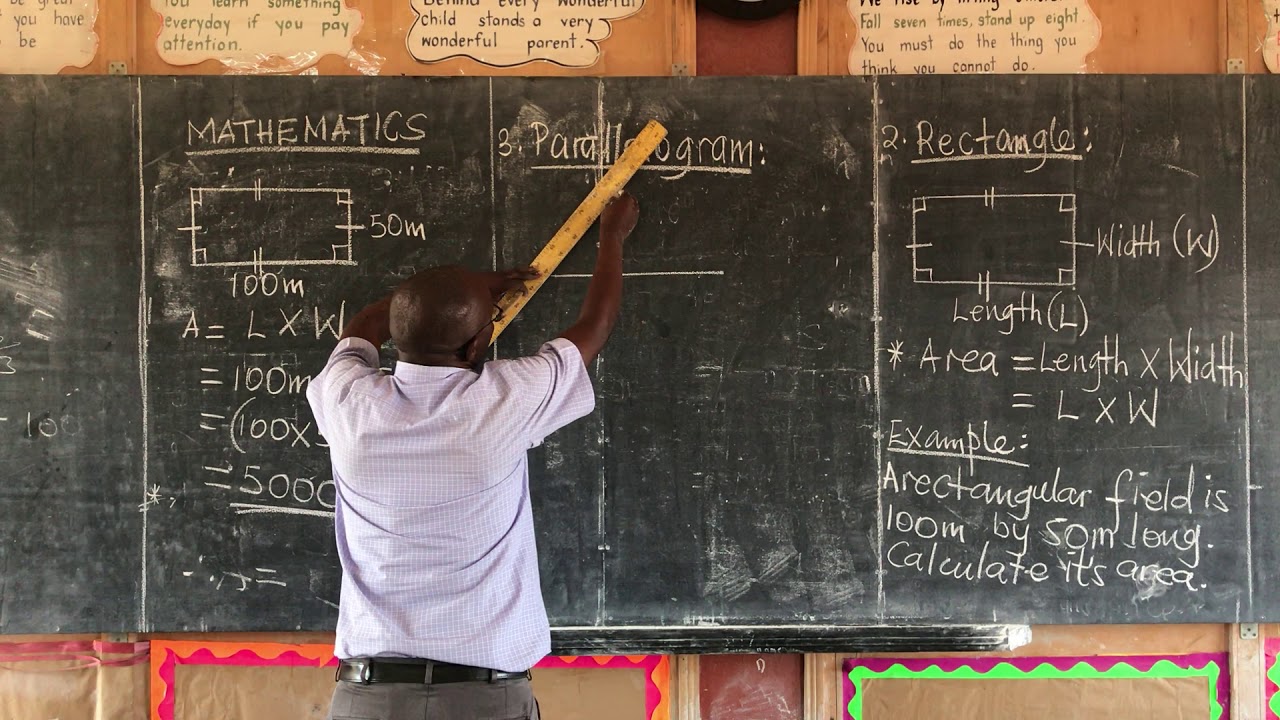 be great
you have
be
You learn something
everyday if you pay
attention.
Behind every wonderful
child stands a very
wonderful parent.
Fall seven times, stand up eight.
You must do the thing you
think you cannot do.
100
MATHEMATICS
50m
100m
A = L X W
= 100m
= (100X
= 5000
3. Parallelogram:
2. Rectangle:
Width (W)
Length (L)
* Area = Length X Width
= L X W
Example:
A rectangular field is
100m by 50m long.
Calculate it's area.